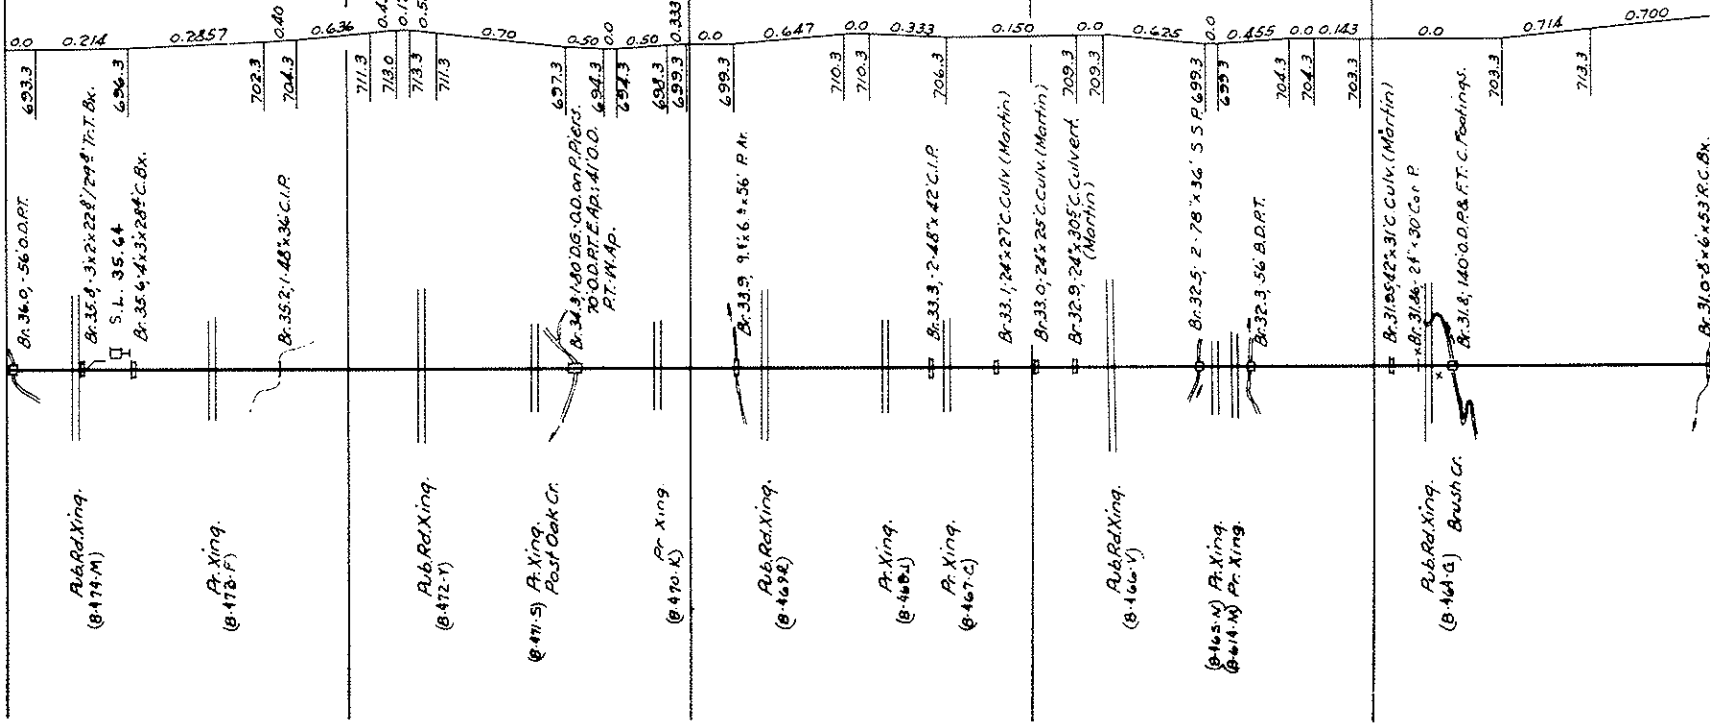 0.0
0.214
0.2857
0.40
0.636
0.70
0.50
0.0
0.50
0.333
0.0
0.647
0.0
0.333
0.150
0.0
0.625
0.0
0.455
0.0
0.143
0.0
0.714
0.700
693.3
696.3
702.3
704.3
711.3
713.0
713.3
711.3
697.3
694.3
694.3
698.3
699.3
699.3
710.3
710.3
706.3
709.3
709.3
699.3
699.3
704.3
704.3
703.3
703.3
713.3
Br. 36.0, - 56' O.D.P.T.
S.L. 35.64
Br. 35.6, 4'x3'x28' C.Bx.
Br. 35.2, 1-48"x36' C.I.P.
Br. 34.3, 1-80' D.G.-O.D. on P. Piers.
70' O.D.P.T. E. Ap.; 41' O.D.
P.T. W. Ap.
Br. 33.3, 2-48"x42' C.I.P.
Br. 33.1, 24"x27' C. Culv. (Martin)
Br. 33.0, 24"x25' C. Culv. (Martin)
Br. 32.9, 24"x30' C. Culvert.
(Martin)
Br. 32.5, 2-78"x36' S S P.
Br. 32.3, 56' B.D.P.T.
Br. 31.95 42"x31' C. Culv. (Martin)
Br. 31.86 - 24"x30' Cor P.
Br. 31.8, 140' O.D.P. & F.T. C. Footings.
Br. 31.0-8'x6'x53' R.C.Bx.
Pub. Rd. Xing.
(8-474-M)
Pr. Xing.
(8-473-F)
Pub. Rd. Xing.
(8-472-Y)
(8-471-S) Pr. Xing.
Post Oak Cr.
Pr Xing
(8-470-K)
Pub. Rd. Xing.
(8-469R)
Pr. Xing.
(8-468-J)
Pr. Xing.
(8-467-C)
Pub. Rd. Xing.
(8-466-V)
(8-465-N) Pr. Xing.
(8-614-M) Pr. Xing.
Pub. Rd. Xing.
(8-464-G)
Brush Cr.